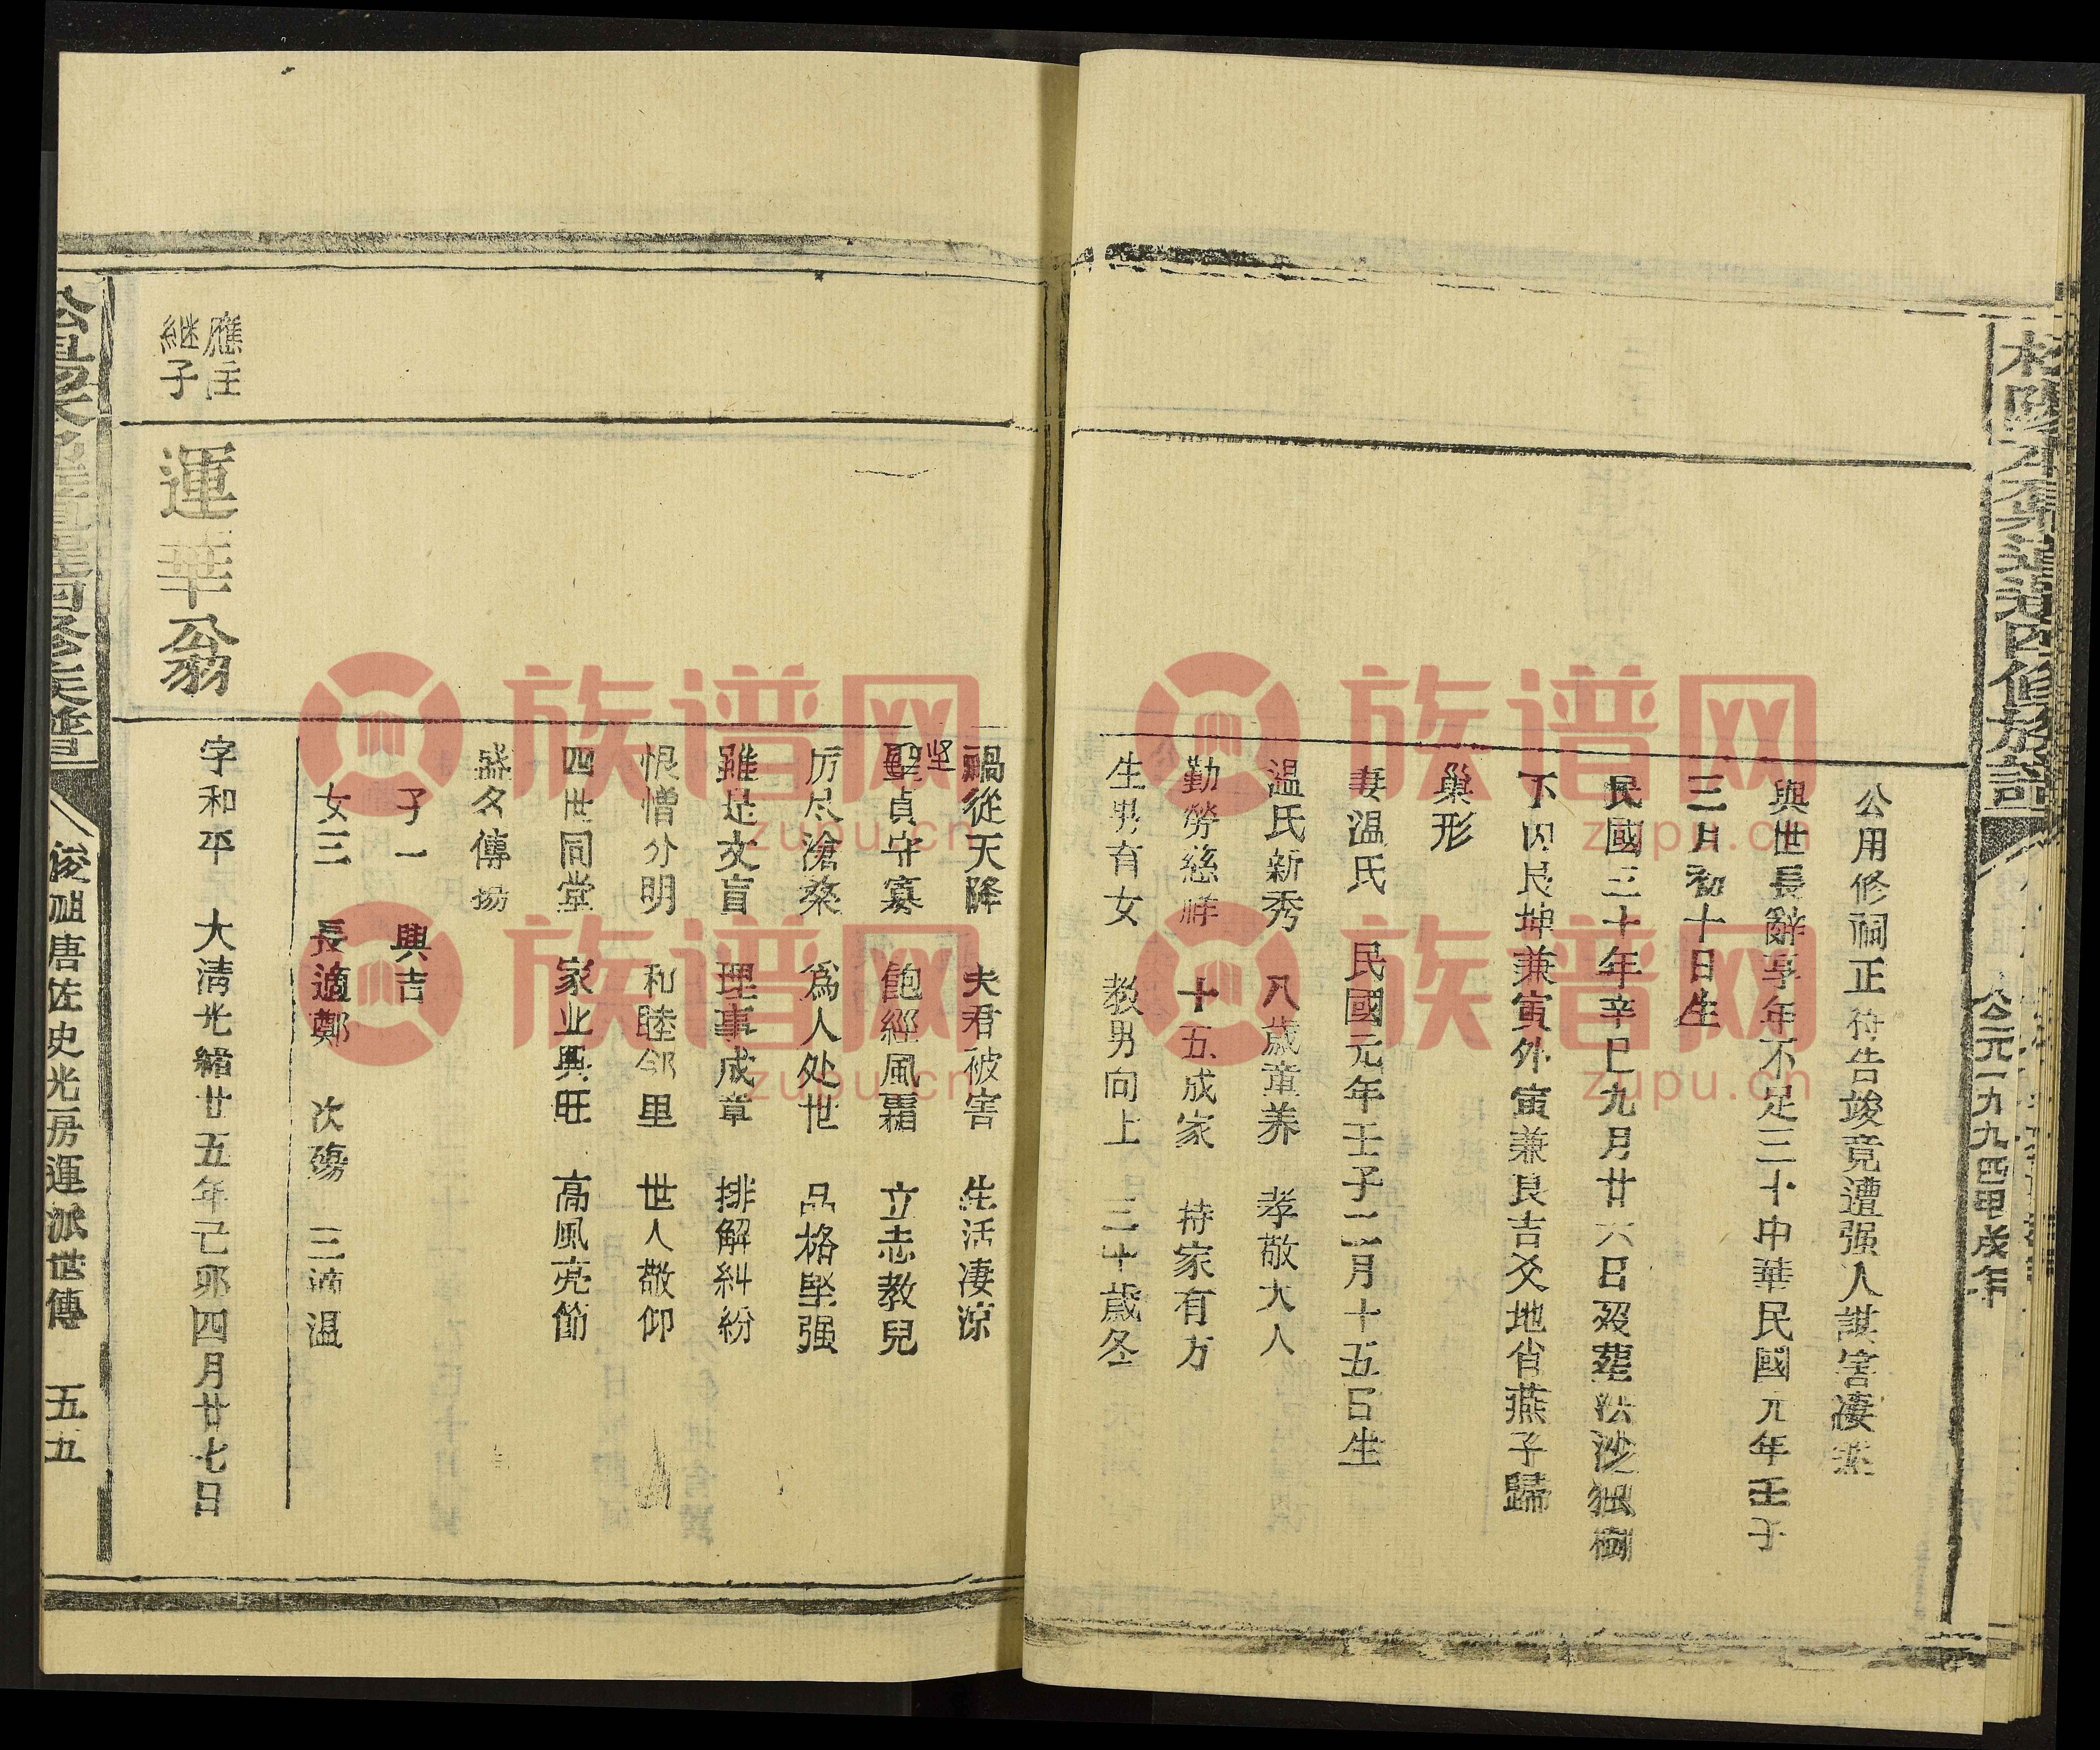 公元一九九四甲戌年
公用修祠正待告竣竟遭强人謀害凄
與世長辭享年不足三十中華民國元年壬子
三月初十日生
民國三十年辛巳九月廿六日殁葬法沙獅樹
下因艮坤兼寅外寅兼艮吉爻地省燕子歸
巢形
妻温氏 民國元年壬子二月十五日生
温氏新秀 八歲童养 孝敬大人
勤勞慈祥 十五成家 持家有方
生男育女 教男向上 三十歲冬
禍從天降 夫君被害 生活凄凉
堅貞守寡 飽經風霜 立志教兒
坚
厉尽滄桑 為人处世 品格堅强
雖是文盲 理事成章 排解糾紛
恨憎分明 和睦邻里 世人敬仰
四世同堂 家业興旺 高風亮節
盛名傳揚
子一 興吉
女三 長適鄭 次殤 三適温
應主
継子
運華翁
字和平 大清光緒廿五年己卯四月廿七日
俊祖唐佐史光房運派世傳 五五
族谱网
zupu.cn
族谱网
zupu.cn
族谱网
zupu.cn
族谱网
zupu.cn